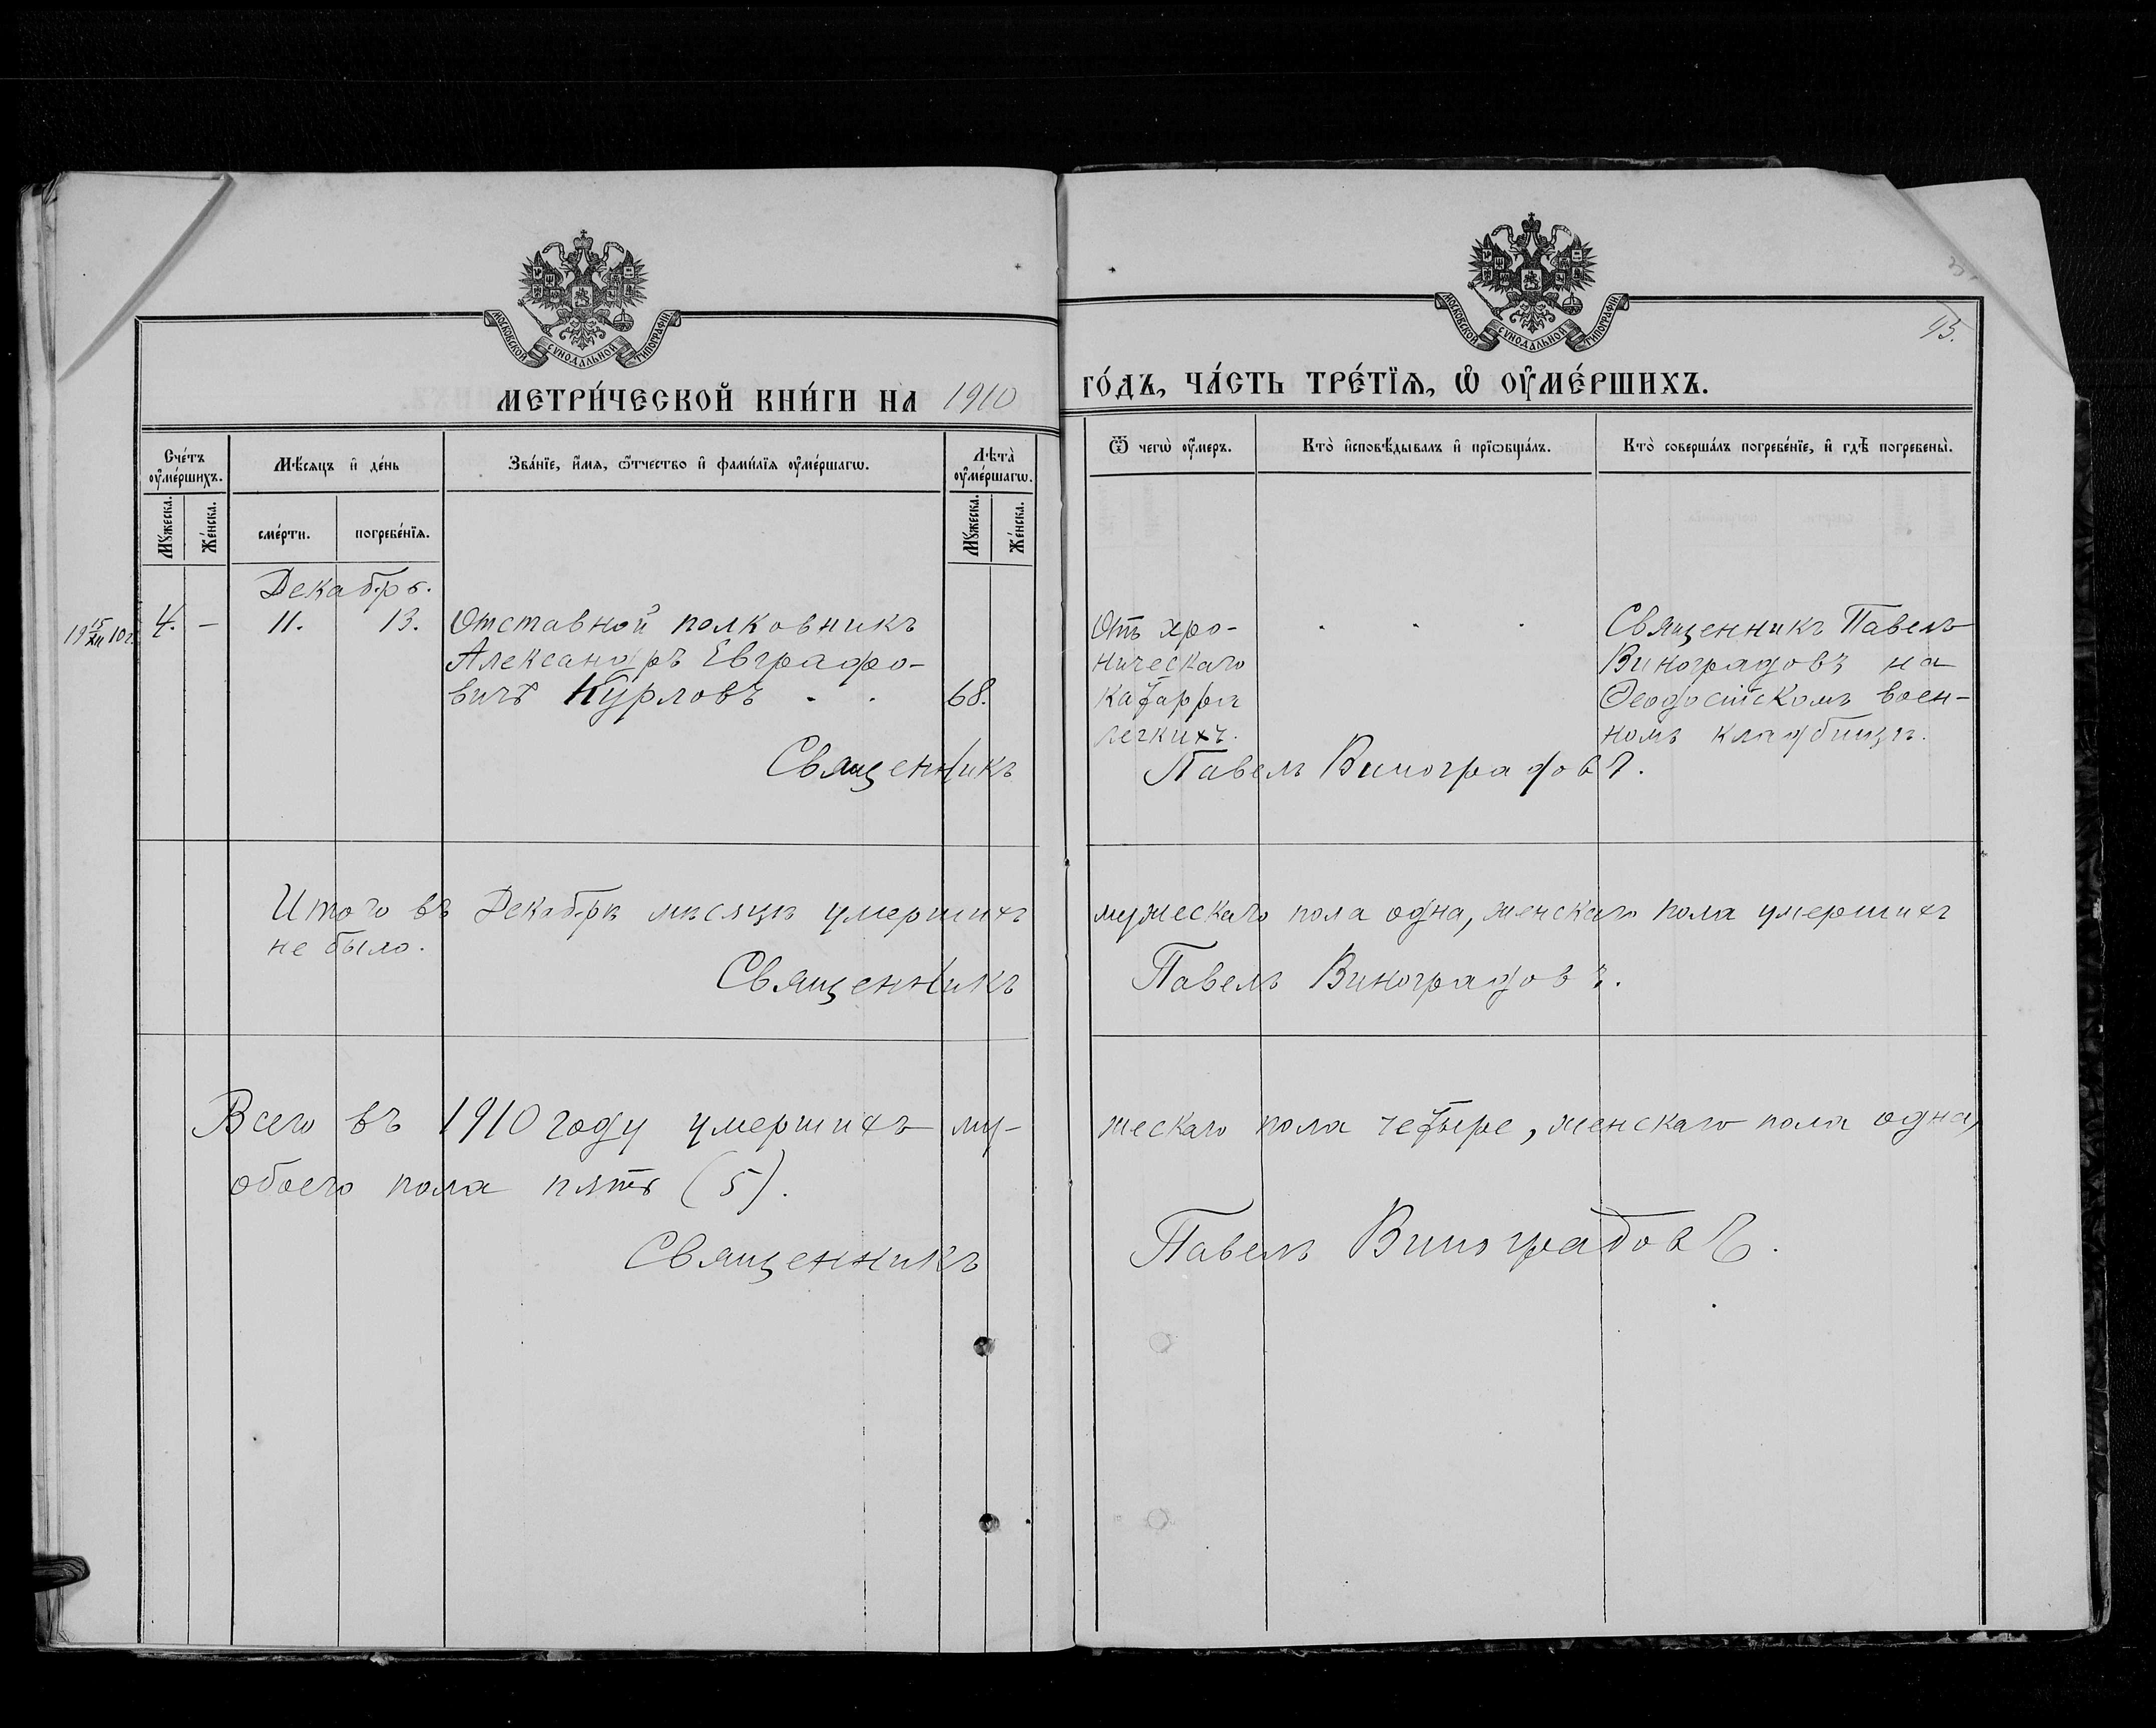 МОСКОВСКОЙ СУНОДАЛЬНОЙ ТИПОГРАФІИ
МОСКОВСКОЙ СУНОДАЛЬНОЙ ТИПОГРАФІИ
МЕТРИ́ЧЕСКОЙ КНИ́ГИ НА 1910
ГО́ДЪ, ЧА́СТЬ ТРЕ́ТЇѦ, Ѡ҆ ОУ҆МЕ́РШИХЪ.
Сче́тъ оу҆ме́ршихъ.
Мꙋ́жеска.
Же́нска.
Мѣ́сѧцъ и҆ де́нь
сме́рти.
погребе́нїѧ.
Зва́нїе, и҆́мѧ, ѻ҆́тчество и҆ фами́лїѧ оу҆ме́ршагѡ.
Лѣта̀ оу҆ме́ршагѡ.
Мꙋ́жеска.
Же́нска.
Ѿ чегѡ̀ оу҆́меръ.
Кто̀ и҆сповѣ́дывалъ и҆ прїѡбща́лъ.
Кто̀ соверша́лъ погребе́нїе, и҆ гдѣ̀ погребены̀.
Декабрь.
19 15/XII 10 г.
4. – 11. 13. Отставной полковникъ
Александръ Евграфо-
вичъ Курловъ . . 68.
Отъ хро-
ническаго
катарра
легкихъ.
. . .
Священникъ Павелъ
Виноградовъ на
Ѳеодосійскомъ воен-
номъ кладбищѣ.
Священникъ Павелъ Виноградовъ.
Итого въ Декабрѣ мѣсяцѣ умершихъ мужескаго пола одна, женскаго пола умершихъ
не было.
Священникъ Павелъ Виноградовъ.
Всего въ 1910 году умершихъ му-жескаго пола четыре, женскаго пола одна,
обоего пола пять (5).
Священникъ Павелъ Виноградовъ.